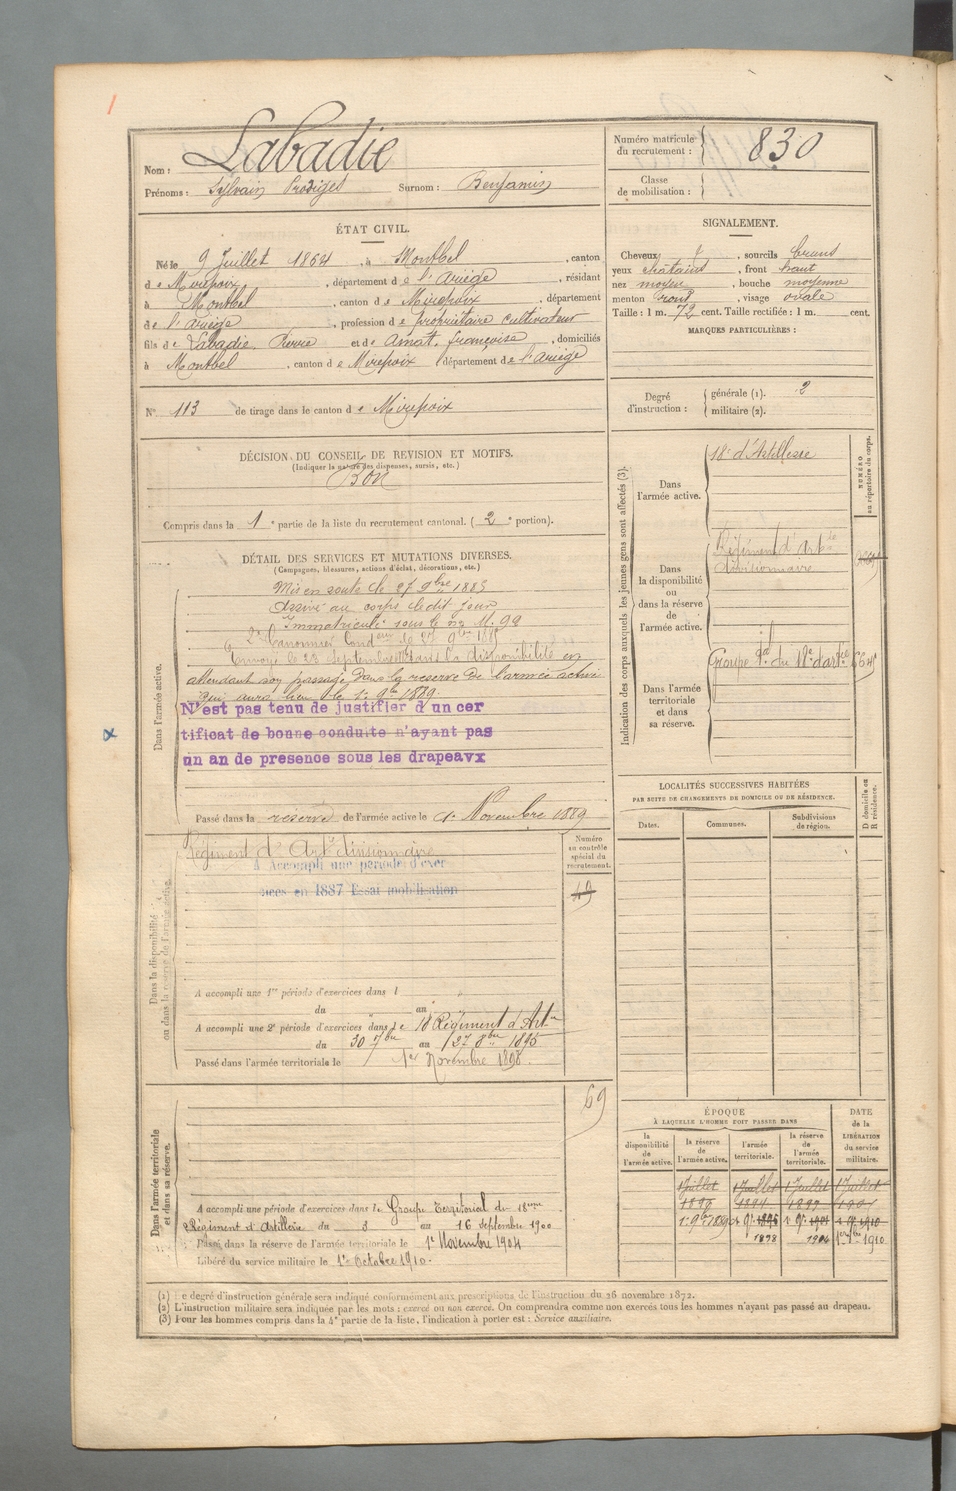 Nom : Labadie
Prénoms : Sylvain Surnom : Benjamin
ÉTAT CIVIL.
Né le 9 Juillet 1864, à Montbel, canton
de Mirepoix, département de l'Ariège, résidant
à Montbel, canton de Mirepoix, département
de l'ariège, profession de propriétaire cultivateur
fils de Labadie, Pierre et de Amat, françoise, domiciliés
à Montbel, canton de Mirepoix département de l'ariège
N° 113 de tirage dans le canton de Mirepoix
DÉCISION DU CONSEIL DE REVISION ET MOTIFS.
(Indiquer la nature des dispenses, sursis, etc.)
Bon
Compris dans la 1e partie de la liste du recrutement cantonal. (2e portion).
DÉTAIL DES SERVICES ET MUTATIONS DIVERSES.
(Campagnes, blessures, actions d'éclat, décorations, etc.)
Dans l'armée active.
Mis en route le 27 9bre 1885
Arrivé au corps le dit jour
Immatriculé sous le no M. 99
2e Canonnier Condeur le 27 9bre 1885
Envoyé le 23 Septembre dans la disponibilité en
attendant son passage dans la reserve de l'armée active
qui aura lieu le 1er 9bre 1889.
N'est pas tenu de justifier d'un cer
tificat de bonne conduite n'ayant pas
un an de presence sous les drapeavx
Passé dans la réserve de l'armée active le 1er Novembre 1889
Dans la disponibilité
ou dans la réserve de l'armée active.
Régiment d'Artie divisionnaire
A Accompli une période d'exer
cices en 1887 Essai mobilisation
Numéro
au contrôle
spécial du
recrutement.
49
A accompli une 1re période d'exercices dans l
du au
A accompli une 2e période d'exercices dans le 18 Régiment d'Artie
du 30 7bre au 27 8bre 1895
Passé dans l'armée territoriale le 1er Novembre 1898.
Dans l'armée territoriale
et dans sa réserve.
69
A accompli une période d'exercices dans le Groupe Territorial du 18eme
Régiment d'Artillerie du 3 au 16 septembre 1900
Passé dans la réserve de l'armée territoriale le 1er Novembre 1904
Libéré du service militaire le 1er Octobre 1910.
Numéro matricule
du recrutement : 830
Classe
de mobilisation :
SIGNALEMENT.
Cheveux, sourcils bruns
yeux châtains, front haut
nez moyen, bouche moyenne
menton rond, visage ovale
Taille : 1 m. 72 cent. Taille rectifiée : 1 m. cent.
MARQUES PARTICULIÈRES :
Degré
d'instruction :
générale (1). 2
militaire (2).
Indication des corps auxquels les jeunes gens sont affectés (3).
NUMÉRO
au répertoire du corps.
Dans
l'armée active.
18e d'Artillerie
Dans
la disponibilité
ou
dans la réserve
de
l'armée active.
Régiment d'Artie
divisionnaire
Dans l'armée
territoriale
et dans
sa réserve.
Groupe tal du 18e d'artie
LOCALITÉS SUCCESSIVES HABITÉES
PAR SUITE DE CHANGEMENTS DE DOMICILE OU DE RÉSIDENCE.
D domicile ou
R résidence.
Dates. Communes. Subdivisions
de région.
ÉPOQUE
À LAQUELLE L'HOMME DOIT PASSER DANS
DATE
de la
LIBÉRATION
du service
militaire.
la
disponibilité
de
l'armée active.
la réserve
de
l'armée active.
l'armée
territoriale.
la réserve
de
l'armée
territoriale.
1 Juillet 1 Juillet 1 Juillet 1 Juillet
1 9bre 1890
1898 1904 1910
(1) Le degré d'instruction générale sera indiqué conformément aux prescriptions de l'instruction du 26 novembre 1872.
(2) L'instruction militaire sera indiquée par les mots : exercé ou non exercé. On comprendra comme non exercés tous les hommes n'ayant pas passé au drapeau.
(3) Pour les hommes compris dans la 4e partie de la liste, l'indication à porter est : Service auxiliaire.